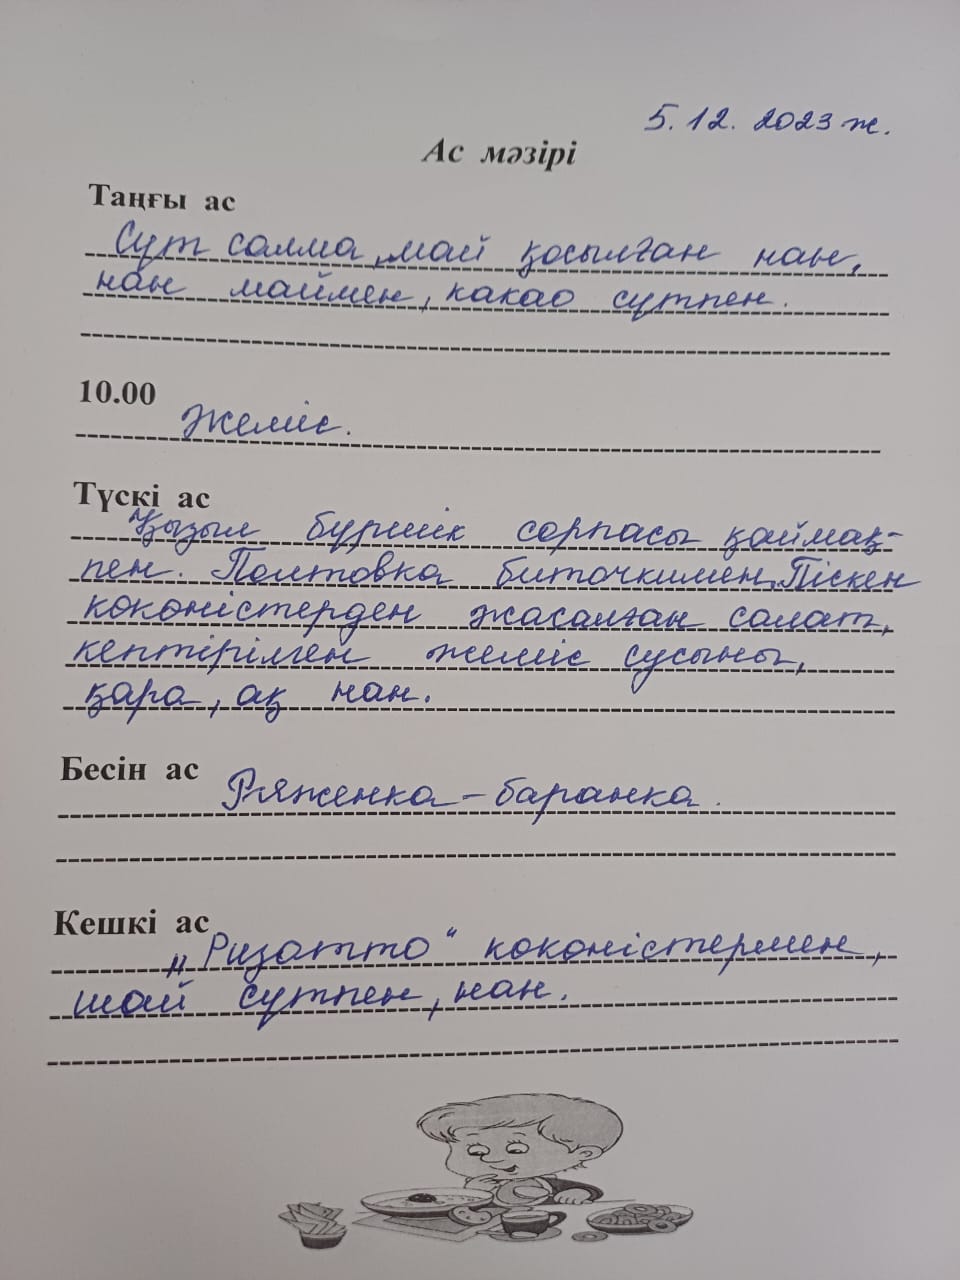 5.12.2023 ж.
Ас мәзірі
Таңғы ас
Сүт салма, май қосылған нан,
нан маймен, какао сүтпен.
10.00
Жеміс.
Түскі ас
Қызыл бүршік сорпасы қаймақ-
пен. Полтовка биточкимен, Піскен
көкөністерден жасалған салат,
кептірілген жеміс сусыны,
қара, ақ нан.
Бесін ас
Ряженка - баранка.
Кешкі ас
„Ризатто“ көкөністермен,
шай сүтпен, нан.